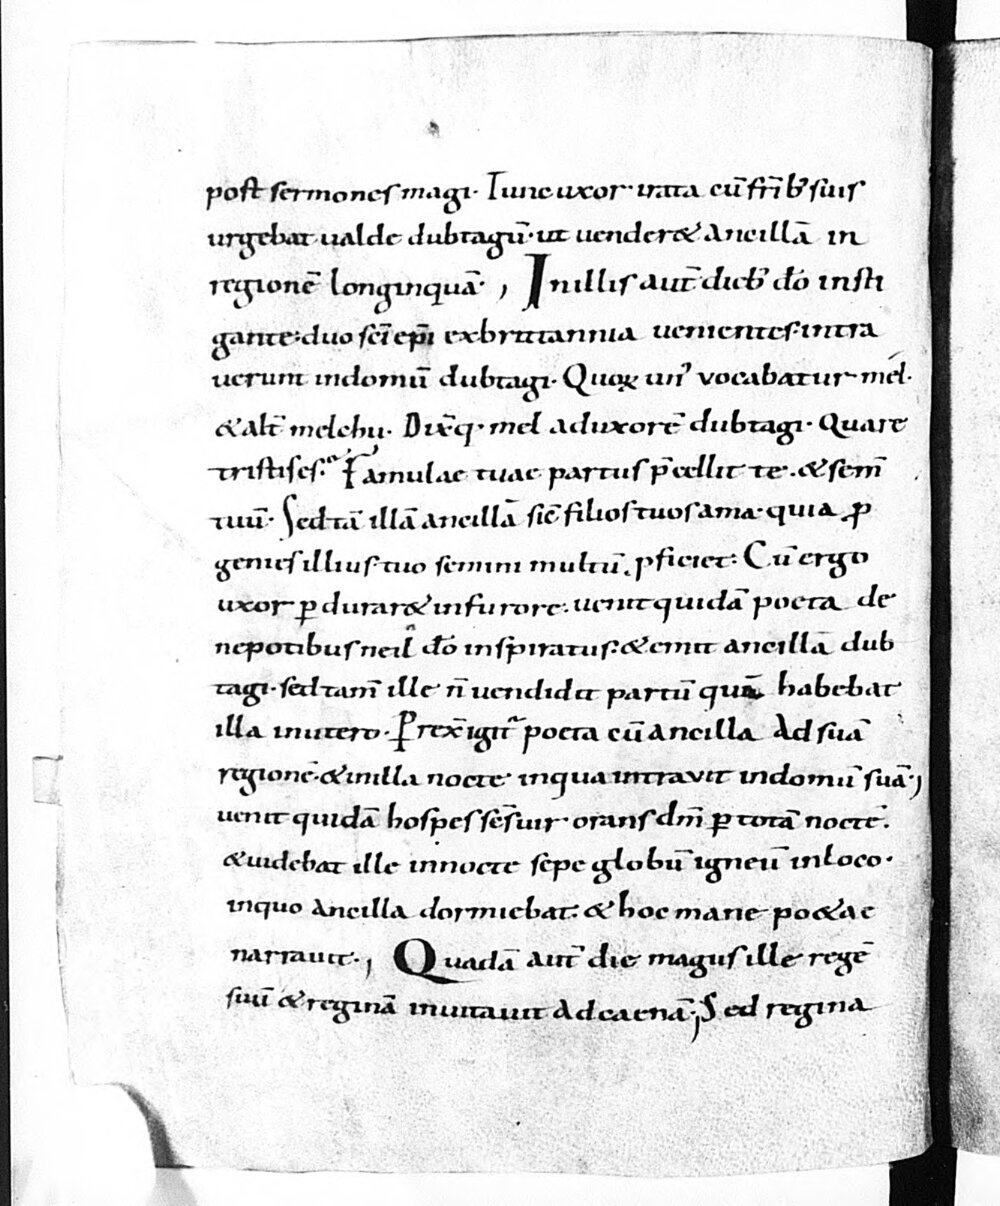 post sermones magi. Tunc uxor irata cū fr̄ib; suis
urgebat ualde dubtagū. ut uender& ancillā in
regionē longinquā., In illis aut̄ dieb; dō insti
gante. duo sc̄i ep̄i ex brittannia uenientes. intra
uerunt in domū dubtagi. Quoꝝ un' vocabatur mél.
& alt̄ melchu. Dix̄q. mel ad uxorē dubtagi. Quare
tristis es. Famulae tuae partus p̄cellit te. & sem̄
tuū. Sed tā illā ancillā sic̄ filios tuos ama. quia ꝓ
genies illius. tuo semini multū. ꝓficiet. Cū ergo
uxor ꝑdurar& in furore. uenit quidā poeta de
nepotibus neil dō inspiratus. & emit ancillā dub
tagi. sed tam̄ ille n̄ uendidit partū quē habebat
illa in utero. Prex̄ igit̄ poeta cū ancilla ad suā
regionē. & in illa nocte in qua intravit in domū suā,
uenit quidā hospes sc̄s uir orans dm̄ ꝑ totā noctē.
& uidebat ille in nocte sepe globū igneū in loco.
in quo ancilla dormiebat. & hoc mane po&ae
narrauit., Quadā aut̄ die magus ille regē
suū & reginā inuitauit ad caenā. Sed regina